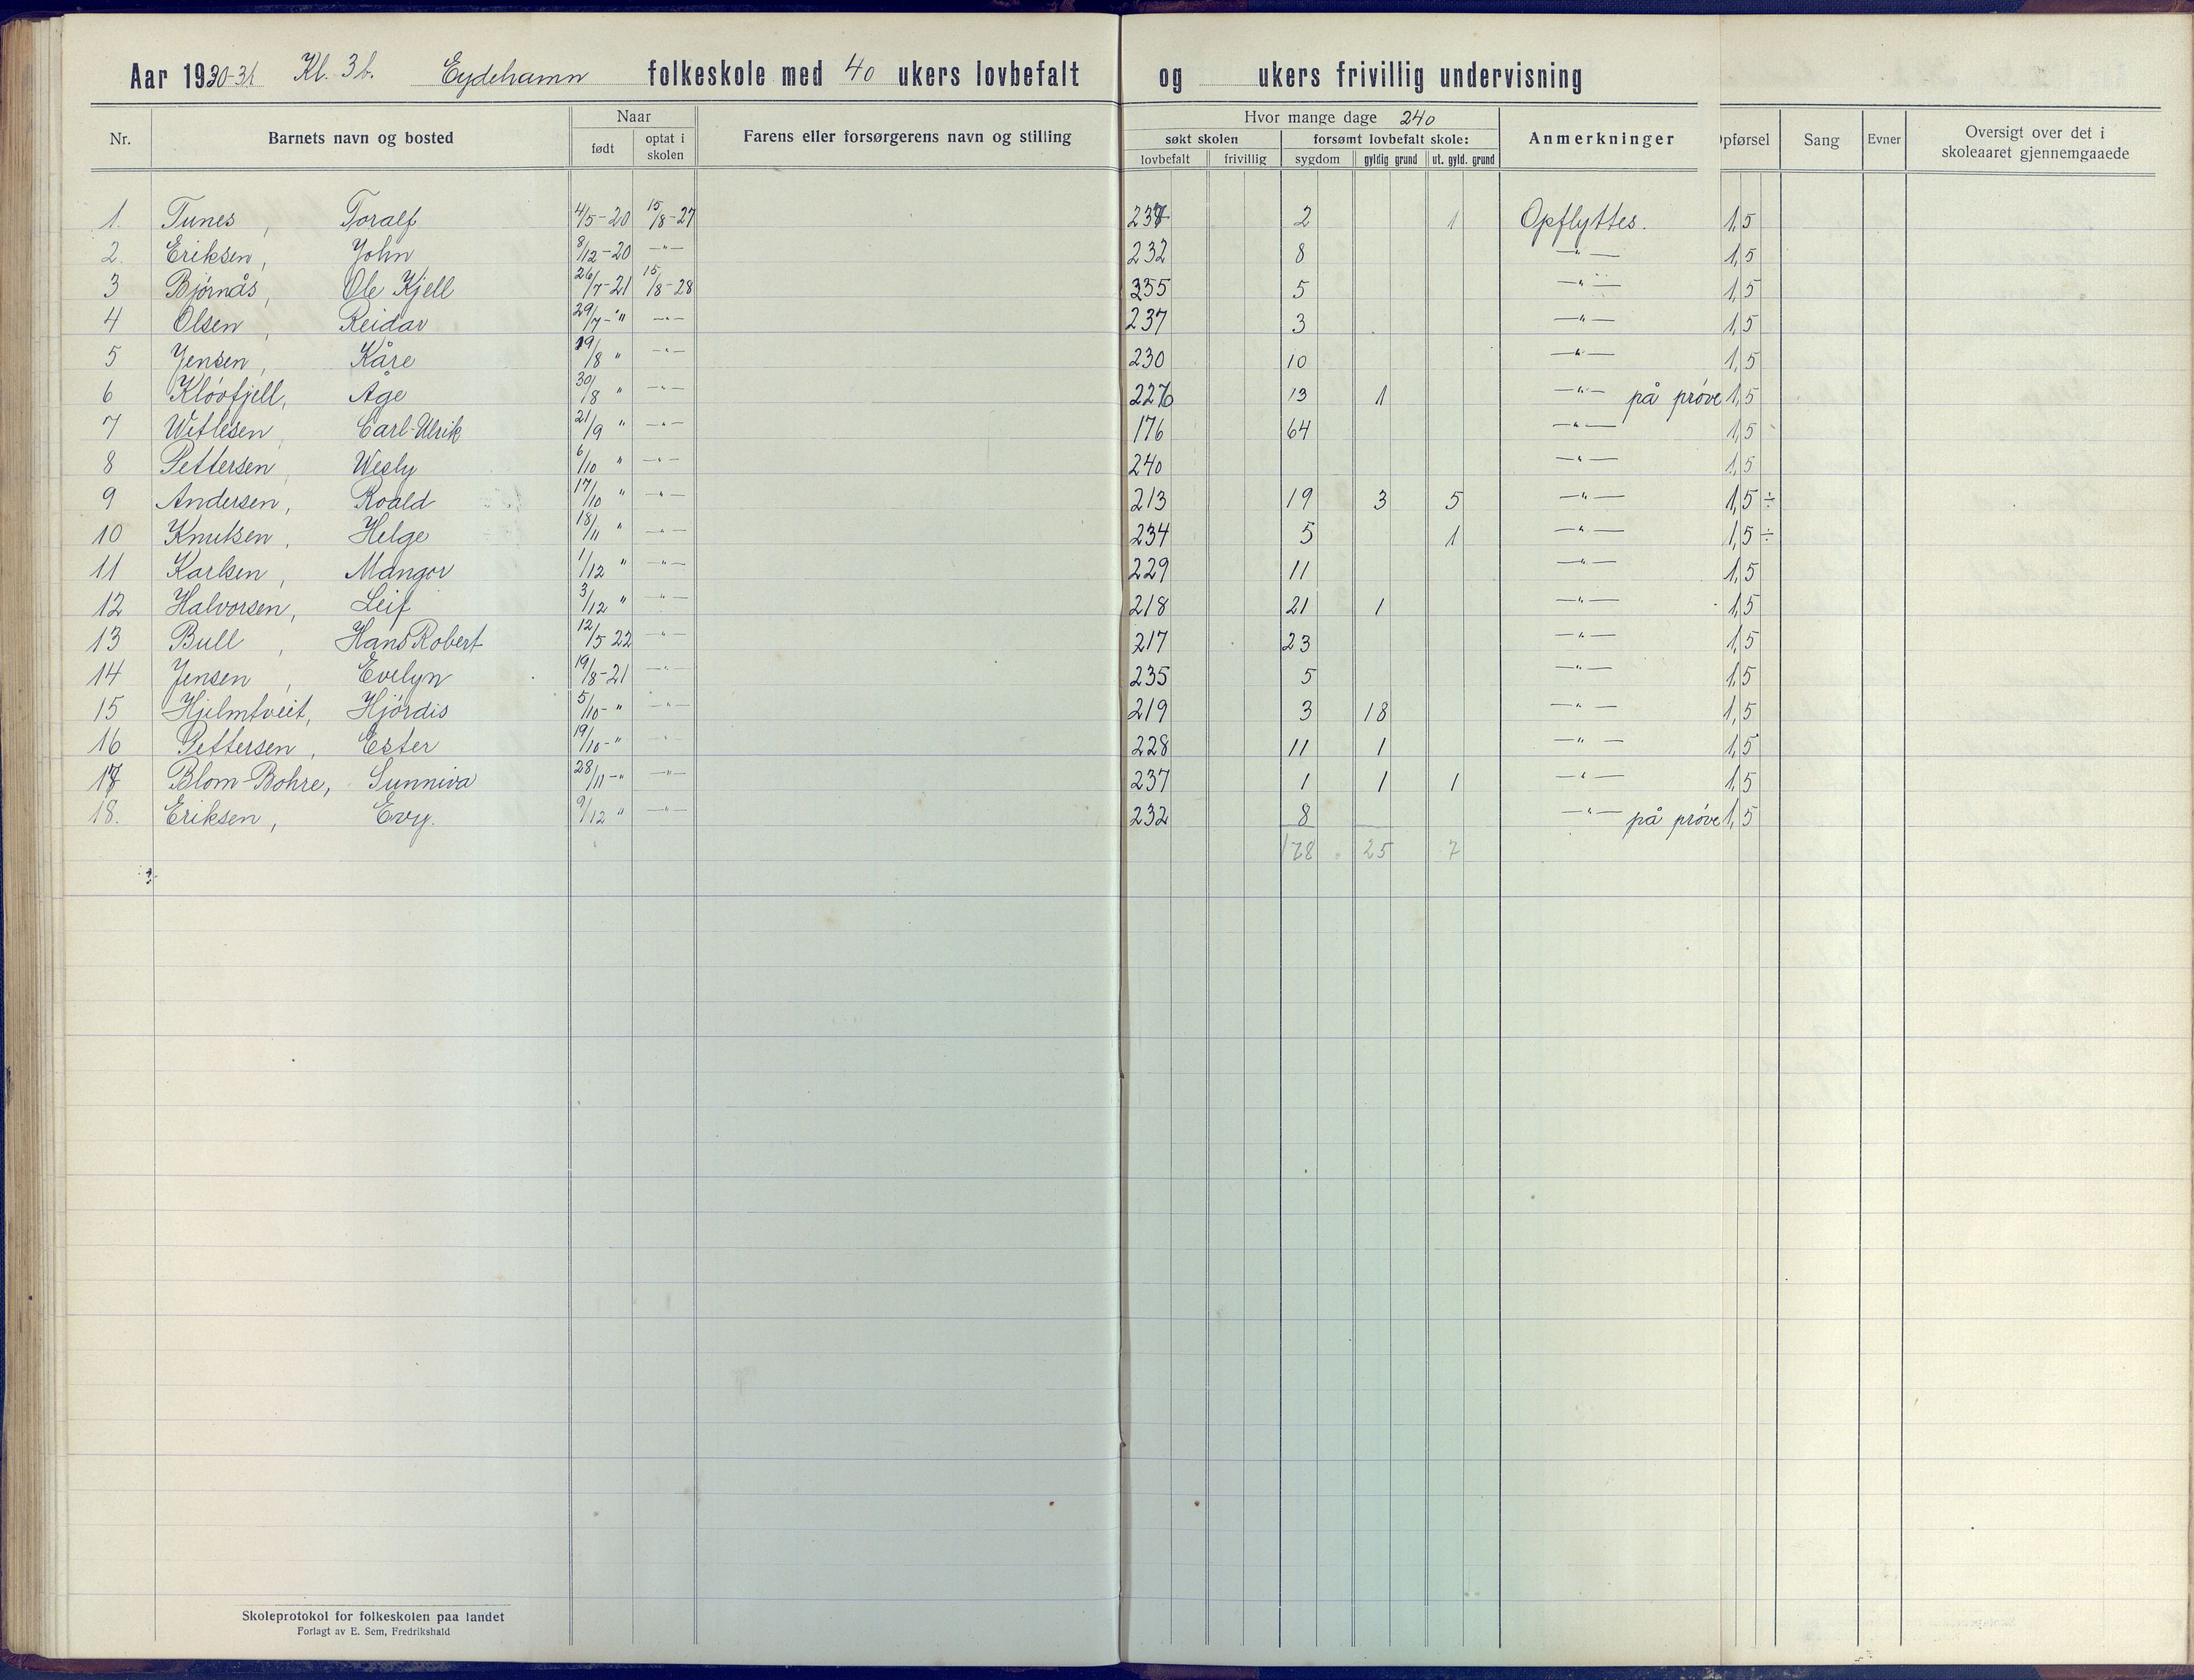 Aar 1930-31 Kl. 3b. Eydehamn folkeskole med 40 ukers lovbefalt og ukers frivillig undervisning
Nr. Barnets navn og bosted Naar født optat i skolen Farens eller forsørgerens navn og stilling Hvor mange dage 240 søkt skolen lovbefalt frivillig forsømt lovbefalt skole: sygdom gyldig grund ut. gyld. grund Anmerkninger Opførsel Sang Evner Oversigt over det i skoleaaret gjennemgaaede
1. Tunes, Toralf 4/5-20 15/8-27 237 2 1 Opflyttes. 1,5
2. Eriksen, John 8/12-20 -"- 232 8 -"- 1,5
3 Bjørnås, Ole Kjell 26/7-21 15/8-28 235 5 -"- 1,5
4 Olsen, Reidar 29/7-" -"- 237 3 -"- 1,5
5 Jensen, Kåre 19/8 " -"- 230 10 -"- 1,5
6 Kløvfjell, Åge 30/8 " -"- 226 13 1 -"- på prøve 1,5
7 Carl-Ulrik 21/9 " -"- 176 64 -"- 1,5
8 Pettersen, Wesly 6/10 " -"- 240 -"- 1,5
9 Andersen, Roald 17/10 " -"- 213 19 3 5 -"- 1,5 ÷
10 Knutsen, Helge 18/11 " -"- 234 5 1 -"- 1,5 ÷
11 Karlsen, Mangor 1/12 " -"- 229 11 -"- 1,5
12 Halvorsen, Leif 3/12 " -"- 218 21 1 -"- 1,5
13 Bull, Hans Robert 12/5 22 -"- 217 23 -"- 1,5
14 Jensen, Evelyn 19/8-21 -"- 235 5 -"- 1,5
15 Hjelmtveit, Hjørdis 5/10-" -"- 219 3 18 -"- 1,5
16 Pettersen, Ester 19/10-" -"- 228 11 1 -"- 1,5
17 Blom-Bohre, Sunniva 28/11-" -"- 237 1 1 1 -"- 1,5
18. Eriksen, Evy. 9/12 " -"- 232 8 -"- på prøve 1,5
25 7
Skoleprotokol for folkeskolen paa landet
Forlagt av E. Sem, Fredrikshald